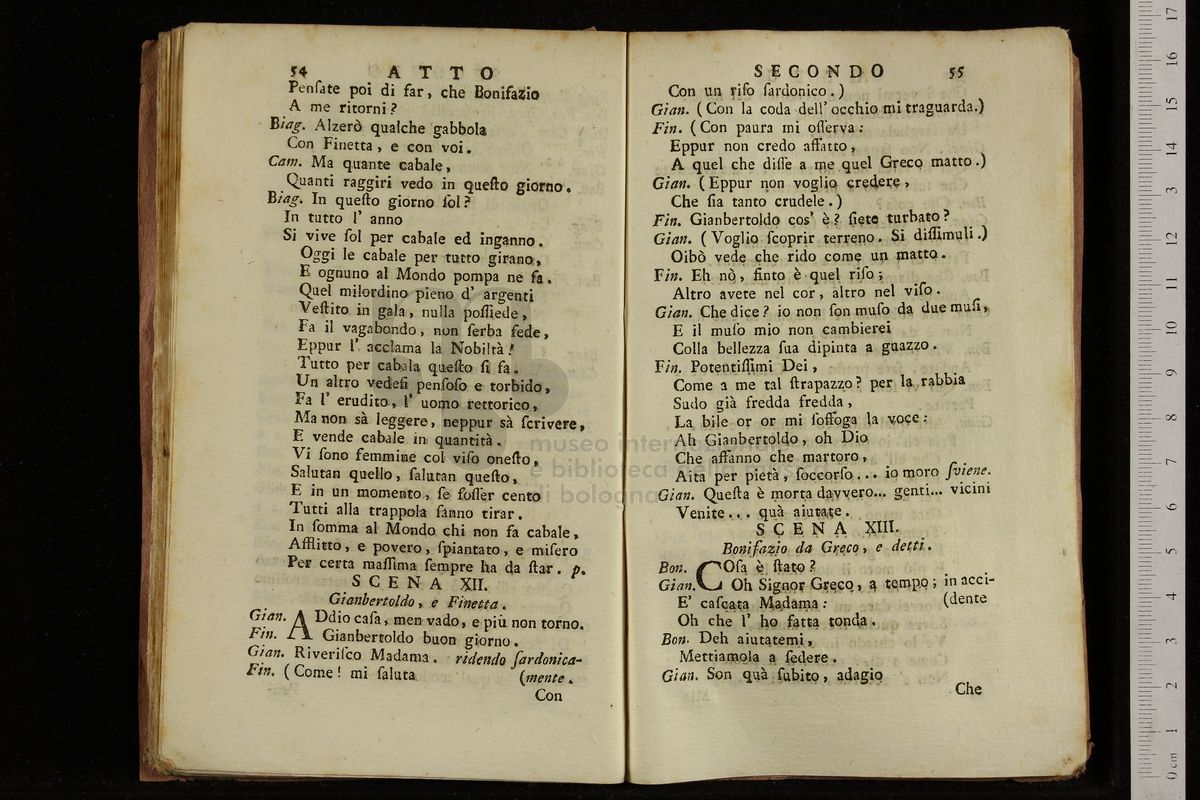 54 ATTO
Penſate poi di far, che Bonifazio
A me ritorni?
Biag. Alzerò qualche gabbola
Con Finetta, e con voi.
Cam. Ma quante cabale,
Quanti raggiri vedo in queſto giorno.
Biag. In queſto giorno ſol?
In tutto l' anno
Si vive ſol per cabale ed inganno.
Oggi le cabale per tutto girano,
E ognuno al Mondo pompa ne fa.
Quel milordino pieno d' argenti
Veſtito in gala, nulla poſſiede,
Fa il vagabondo, non ſerba fede,
Eppur l' acclama la Nobiltà!
Tutto per cabala queſto ſi fa.
Un altro vedeſi penſoſo e torbido,
Fa l' erudito, l' uomo rettorico,
Ma non sà leggere, neppur sà ſcrivere,
E vende cabale in quantità.
Vi ſono femmine col viſo oneſto,
Salutan quello, ſalutan queſto,
E in un momento, ſe foſſer cento
Tutti alla trappola fanno tirar.
In ſomma al Mondo chi non fa cabale,
Afflitto, e povero, ſpiantato, e miſero
Per certa maſſima ſempre ha da ſtar. p.
SCENA XII.
Gianbertoldo, e Finetta.
Gian. ADdio caſa, men vado, e più non torno.
Fin. Gianbertoldo buon giorno.
Gian. Riveriſco Madama. ridendo ſardonica-
Fin. (Come! mi ſaluta (mente.
Con
SECONDO 55
Con un riſo ſardonico.)
Gian. (Con la coda dell' occhio mi traguarda.)
Fin. (Con paura mi oſſerva:
Eppur non credo affatto,
A quel che diſſe a me quel Greco matto.)
Gian. (Eppur non voglio credere,
Che ſia tanto crudele.)
Fin. Gianbertoldo cos' è? ſiete turbato?
Gian. (Voglio ſcoprir terreno. Si diſſimuli.)
Oibò vede che rido come un matto.
Fin. Eh nò, finto è quel riſo;
Altro avete nel cor, altro nel viſo.
Gian. Che dice? io non ſon muſo da due muſi,
E il muſo mio non cambierei
Colla bellezza ſua dipinta a guazzo.
Fin. Potentiſſimi Dei,
Come a me tal ſtrapazzo? per la rabbia
Sudo già fredda fredda,
La bile or or mi ſoffoga la voce:
Ah Gianbertoldo, oh Dio
Che affanno che martoro,
Aita per pietà, ſoccorſo... io moro ſviene.
Gian. Queſta è morta davvero... genti... vicini
Venite... quà aiutate.
SCENA XIII.
Bonifazio da Greco, e detti.
Bon. COſa è ſtato?
Gian. Oh Signor Greco, a tempo; in acci-
E' caſcata Madama: (dente
Oh che l' ho fatta tonda.
Bon. Deh aiutatemi,
Mettiamola a ſedere.
Gian. Son quà ſubito, adagio
Che